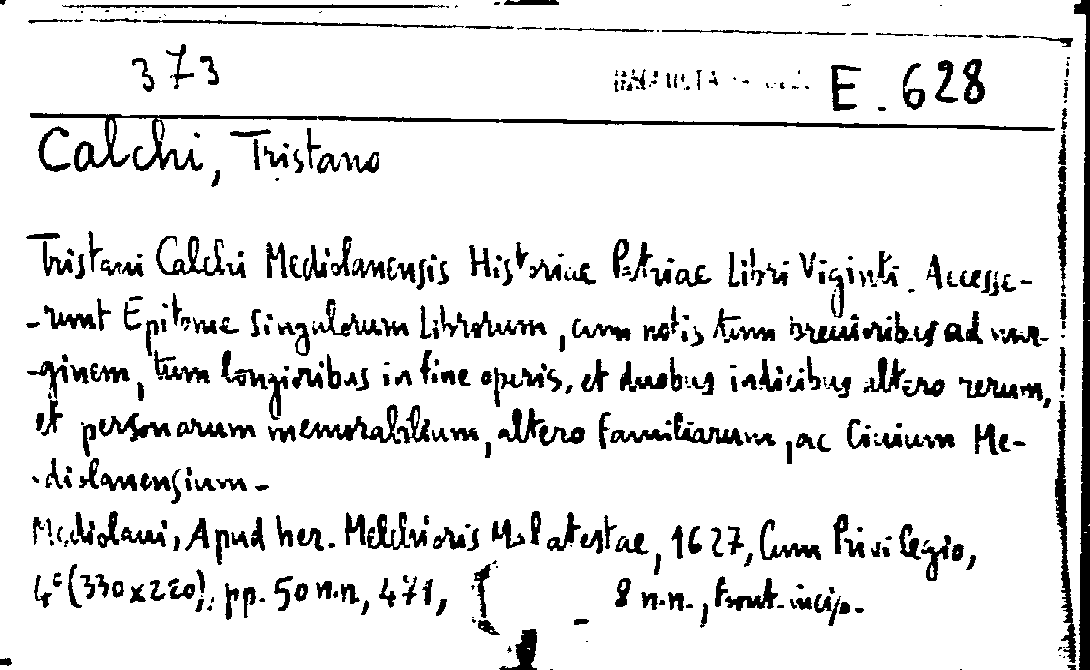 373 E. 628
Calchi, Tristano
Tristani Calchi Mediolanensis Historiae Patriae Libri Viginti. Accesse-
-runt Epitome singulorum librorum, cum notis tum brevioribus ad mar-
-ginem, tum longioribus in fine operis, et duobus indicibus altero rerum,
et personarum memorabilium, altero familiarum, ac Civium Me-
-diolanensium-
Mediolani, Apud her. Melchioris Malatestae, 1627, Cum Privilegio,
4° (330x220), pp. 50 n.n, 471, [ - 8 n.n., front. incip.